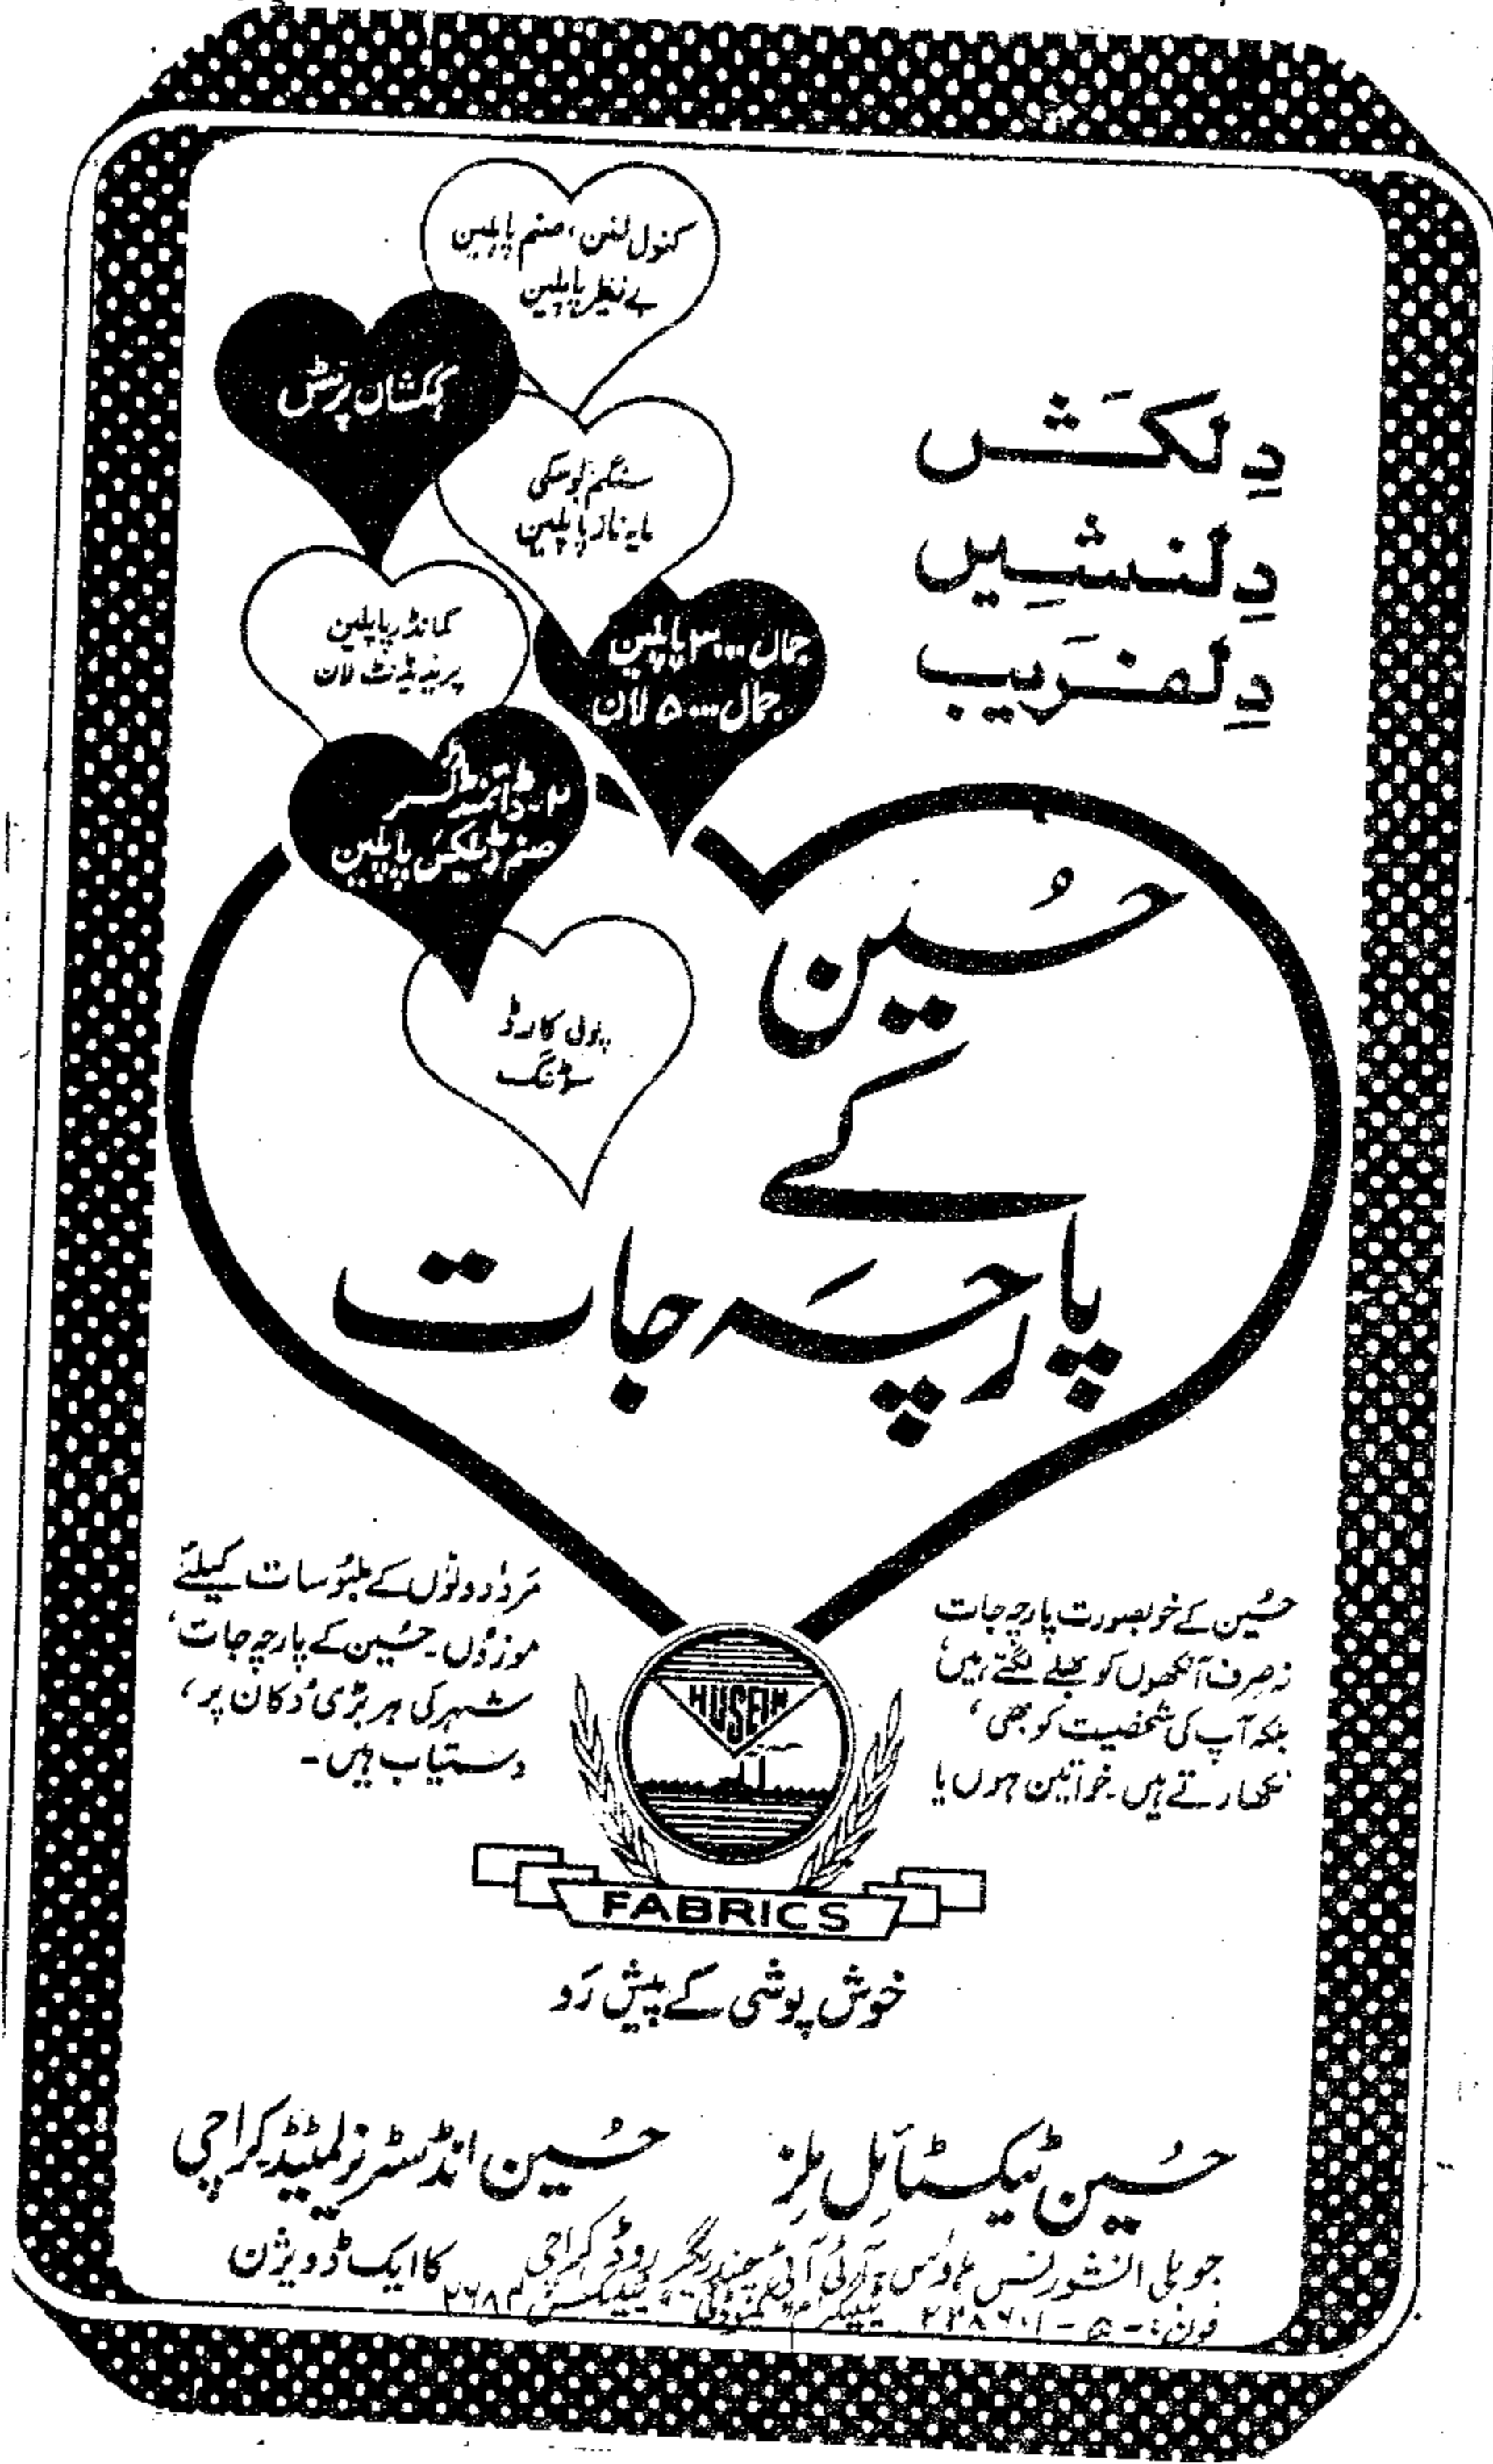 دِلکَش
دِلنشِیں
دِلفرَیب
کنول لنن، صنم پاپلین
بے نظیر پاپلین
کہکشاں پرنٹس
سنگم بوسکی
مایہ ناز پاپلین
کمانڈر پاپلین
پریذیڈنٹ لان
جمال ۳۰۰۰ پاپلین
جمال ۵۰۰۰ لان
۲-ڈائمنڈ
صنم ڈیلکس پاپلین
کارڈ
سوٹنگ
حُسین
کے
پارچَہ جات
حُسین کے خوبصورت پارچہ جات
نہ صِرف آنکھوں کو بھلے لگتے ہیں
بلکہ آپ کی شخصیت کو بھی،
نکھارتے ہیں. خواتین ہوں یا
مَرد، دونوں کے ملبُوسات کیلئے
موزوُں. حُسین کے پارچہ جات،
شہر کی ہر بڑی دُکان پر،
دستیاب ہیں۔
HUSEIN
FABRICS
خوش پوشی کے پیش رَو
حُسین ٹیکسٹائِل مِلز
حُسین انڈسٹریز لمیٹڈ کراچی
کا ایک ڈویژن
جوبلی انشورنس ہاؤس، آئی آئی چندریگر روڈ کراچی
فون:- ۵ - ۲۲۸۶۰۱